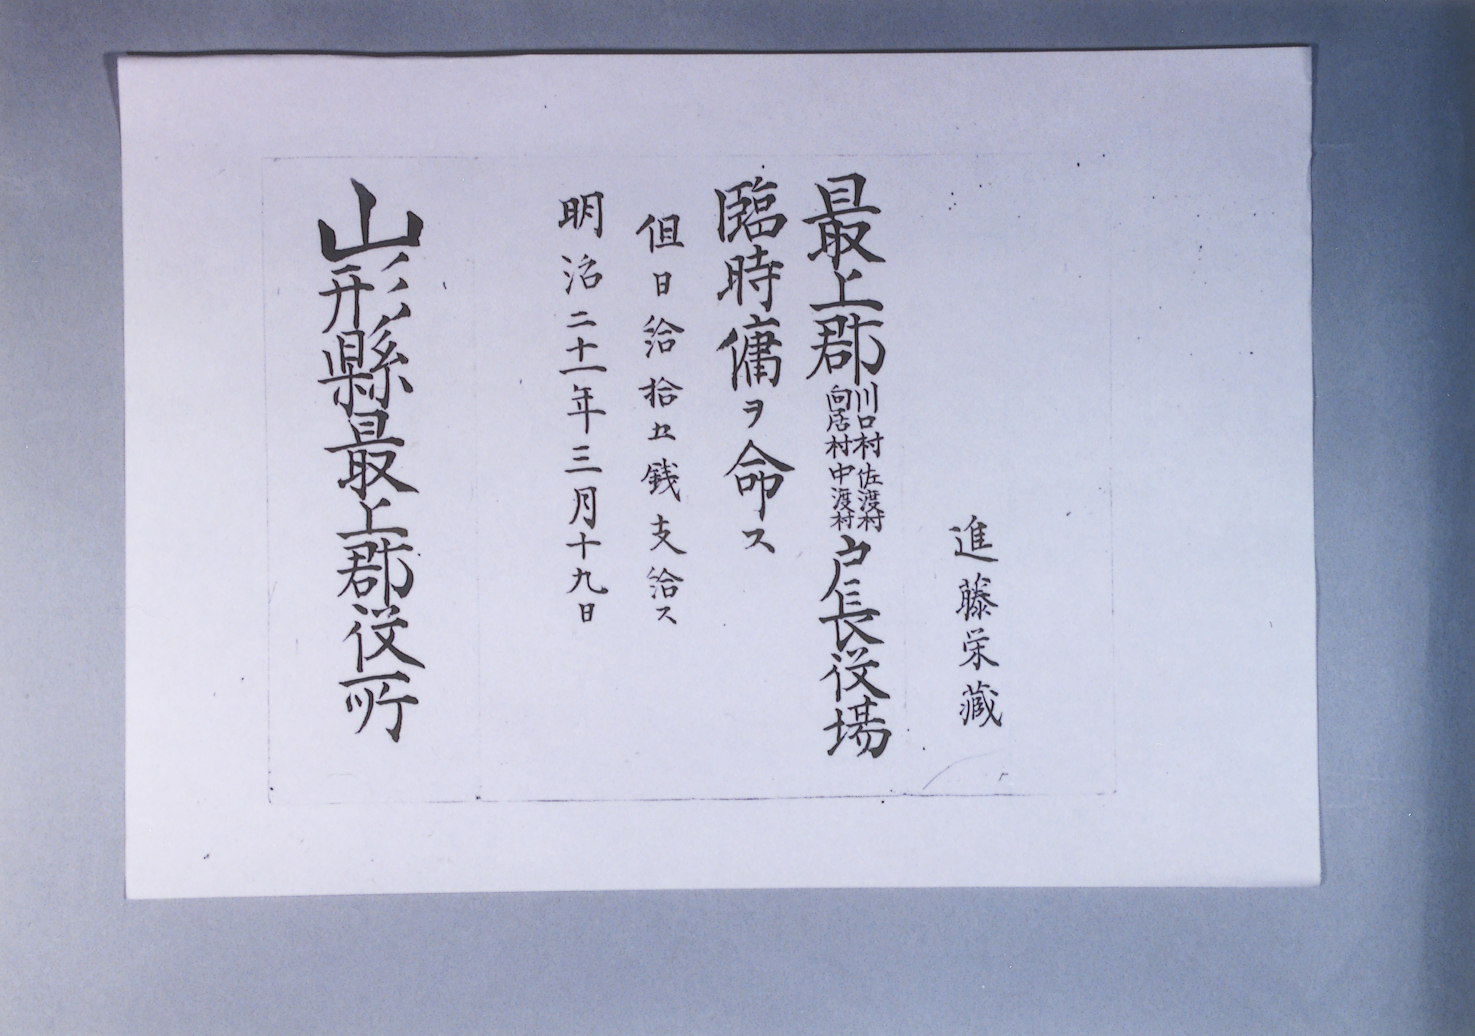 進藤栄蔵
最上郡川口村佐渡村向居村中渡村戸長役場
臨時傭ヲ命ス
但日給拾五銭支給ス
明治二十一年三月十九日
山形縣最上郡役所